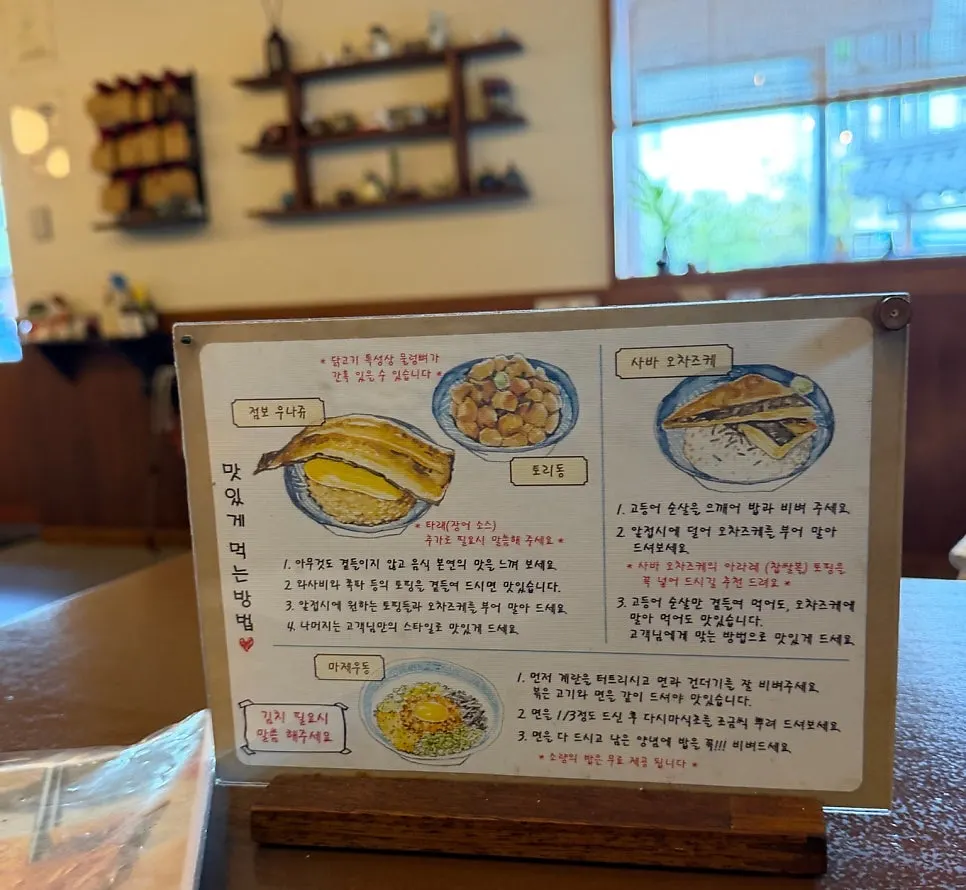 맛있게 먹는방법
* 닭고기 특성상 물렁뼈가
간혹 있을 수 있습니다 *
점보 우나쥬
토리동
* 타래(장어 소스)
추가로 필요시 말씀해 주세요 *
1. 아무것도 곁들이지 않고 음식 본연의 맛을 느껴 보세요.
2. 와사비와 쪽파 등의 토핑을 곁들여 드시면 맛있습니다.
3. 앞접시에 원하는 토핑들과 오차즈케를 부어 말아 드세요.
4. 나머지는 고객님만의 스타일로 맛있게 드세요.
사바 오차즈케
1. 고등어 순살을 으깨어 밥과 비벼 주세요.
2. 앞접시에 덜어 오차즈케를 부어 말아
드셔보세요.
* 사바 오차즈케의 아라레 (찹쌀볼) 토핑을
꼭 넣어 드시길 추천 드려요 *
3. 고등어 순살만 곁들여 먹어도, 오차즈케에
말아 먹어도 맛있습니다.
고객님에게 맞는 방법으로 맛있게 드세요.
마제우동
김치 필요시
말씀 해주세요
1. 먼저 계란을 터트리시고 면과 건더기를 잘 비벼주세요.
볶은 고기와 면을 같이 드셔야 맛있습니다.
2. 면을 1/3정도 드신 후 다시마식초를 조금씩 뿌려 드셔보세요.
3. 면을 다 드시고 남은 양념에 밥을 꼭!!! 비벼드세요.
* 소량의 밥은 무료 제공 됩니다 *